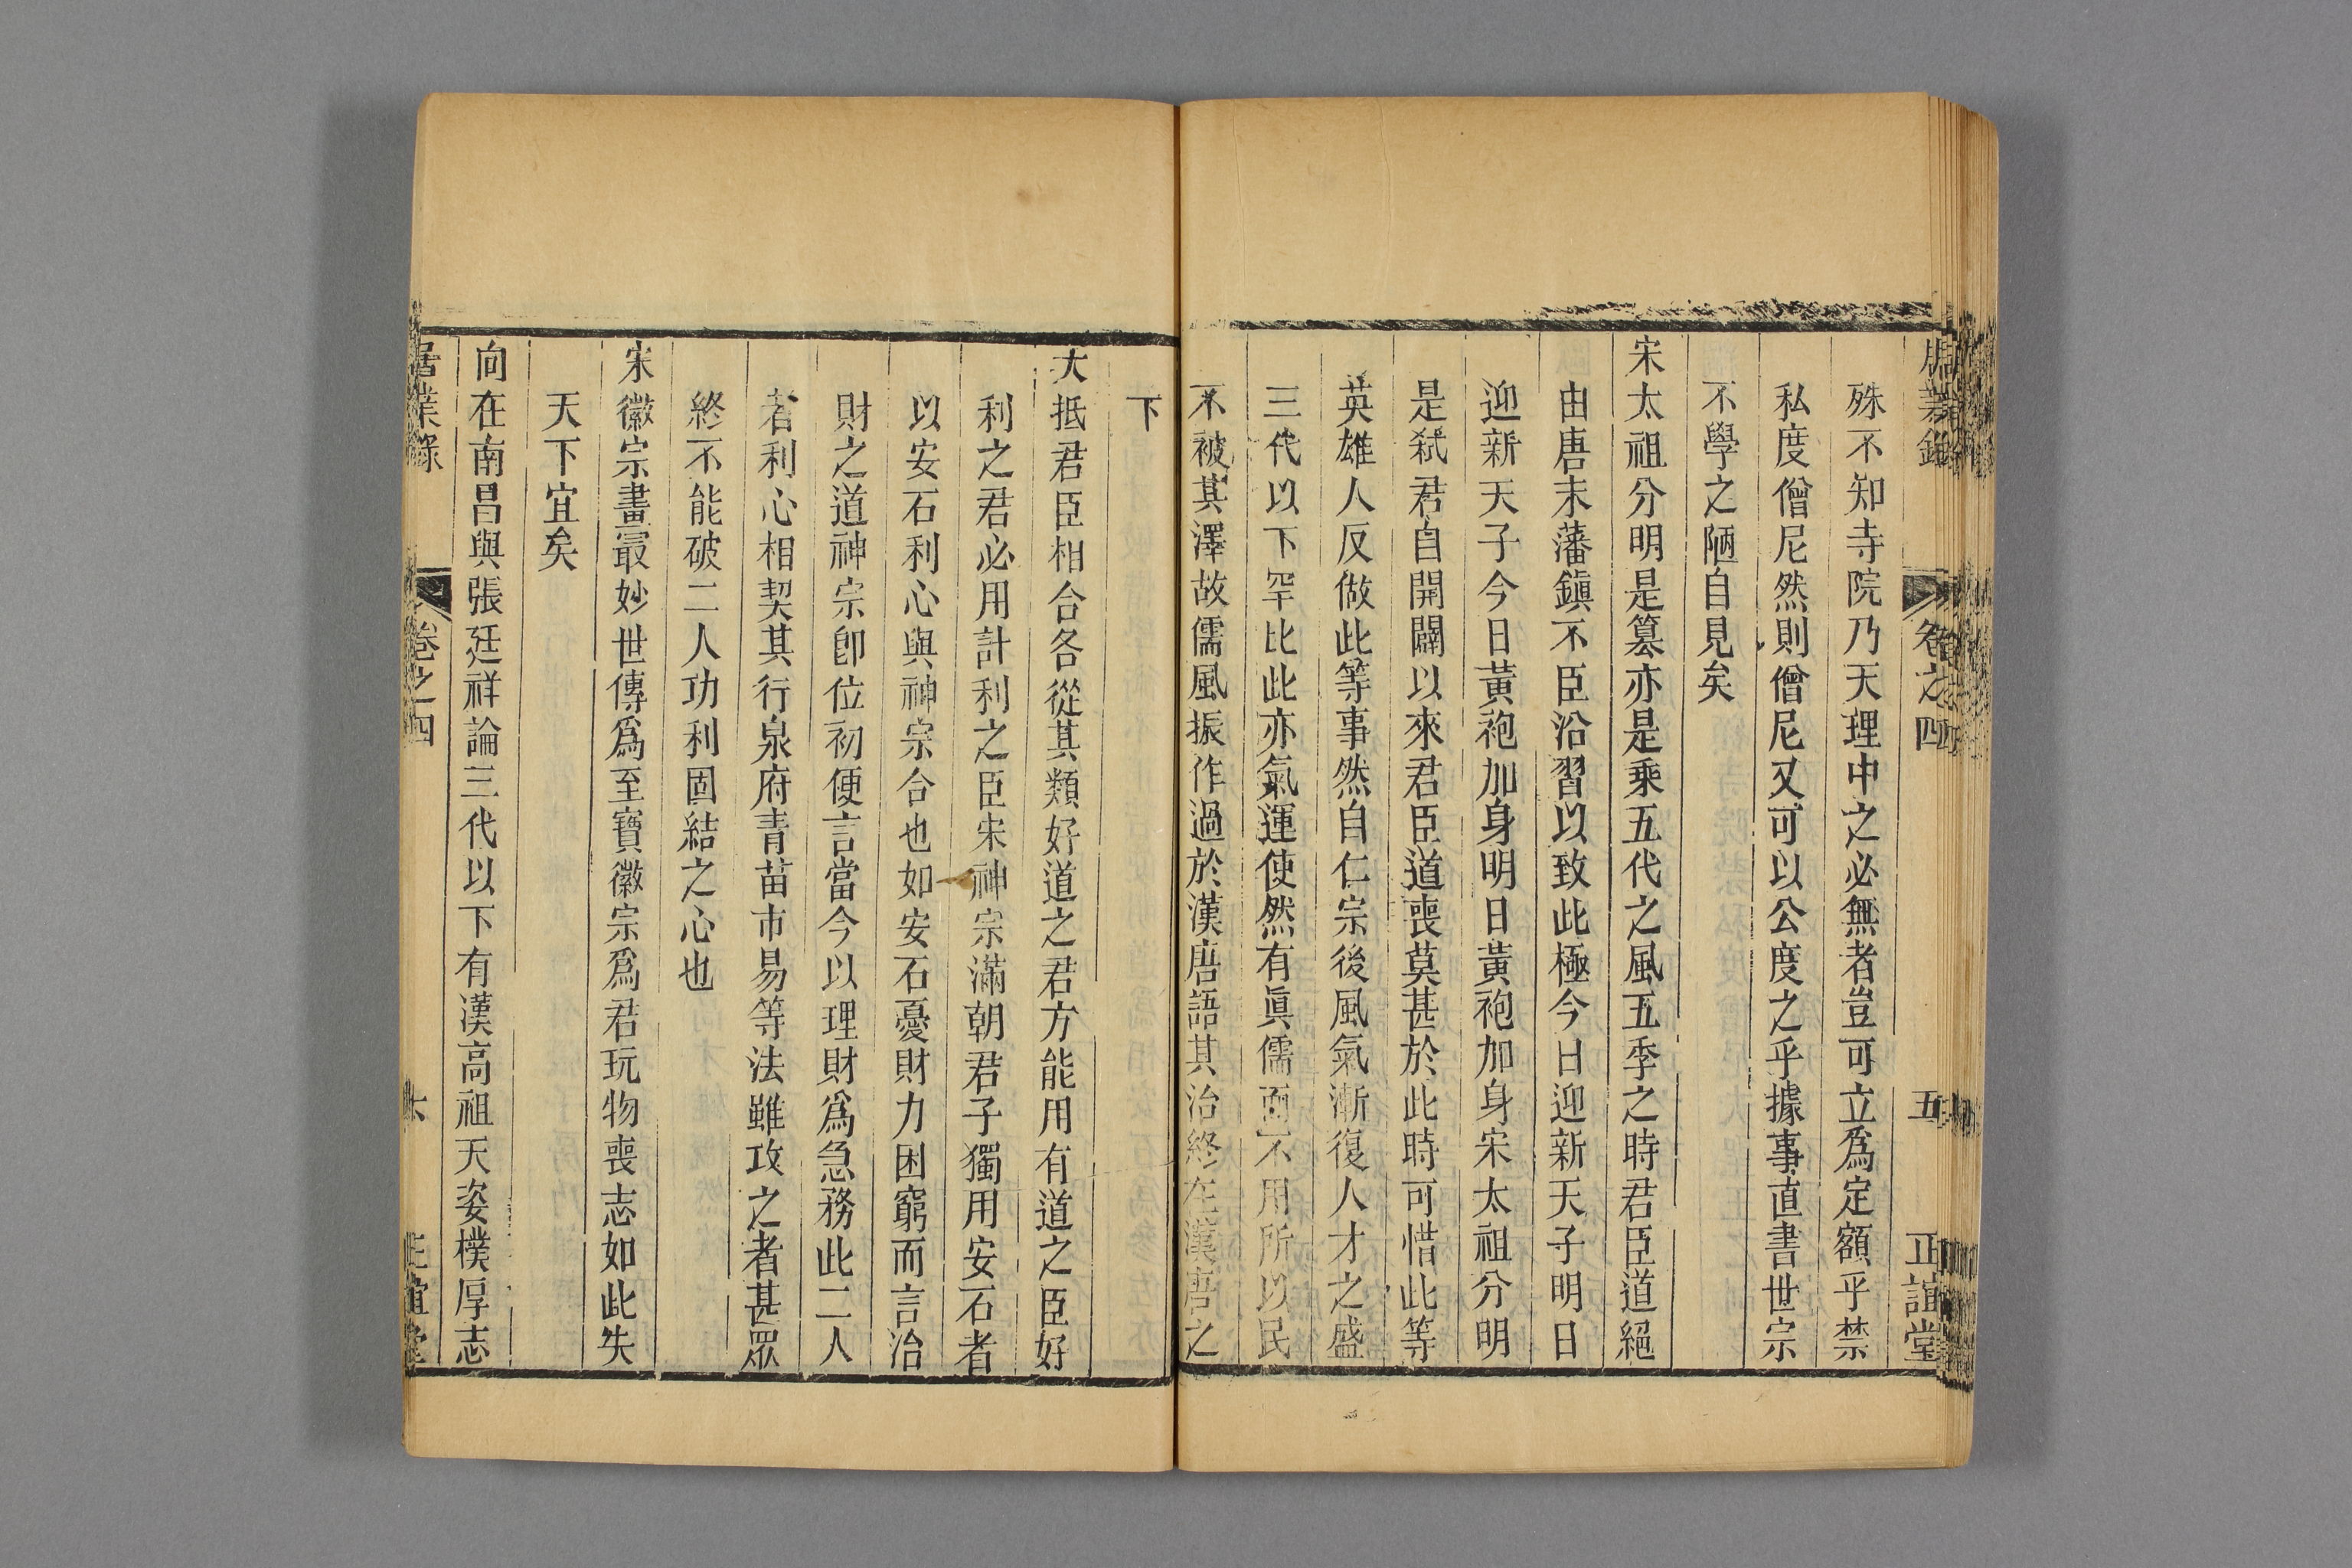 居業錄 卷之四 五 正誼堂
殊不知寺院乃天理中之必無者豈可立爲定額乎禁
私度僧尼然則僧尼又可以公度之乎據事直書世宗
不學之陋自見矣
宋太祖分明是篡亦是乘五代之風五季之時君臣道絕
由唐末藩鎭不臣沿習以致此極今日迎新天子明日
迎新天子今日黃袍加身明日黃袍加身宋太祖分明
是弑君自開闢以來君臣道喪莫甚於此時可惜此等
英雄人反做此等事然自仁宗後風氣漸復人才之盛
三代以下罕比此亦氣運使然有眞儒而不用所以民
不被其澤故儒風振作過於漢唐語其治終在漢唐之
下
大抵君臣相合各從其類好道之君方能用有道之臣好
利之君必用計利之臣宋神宗滿朝君子獨用安石者
以安石利心與神宗合也如安石憂財力困窮而言治
財之道神宗卽位初便言當今以理財爲急務此二人
者利心相契其行泉府青苗市易等法雖攻之者甚眾
終不能破二人功利固結之心也
宋徽宗畫最妙世傳爲至寶徽宗爲君玩物喪志如此失
天下宜矣
向在南昌與張廷祥論三代以下有漢高祖天姿樸厚志
居業錄 卷之四 六 正誼堂